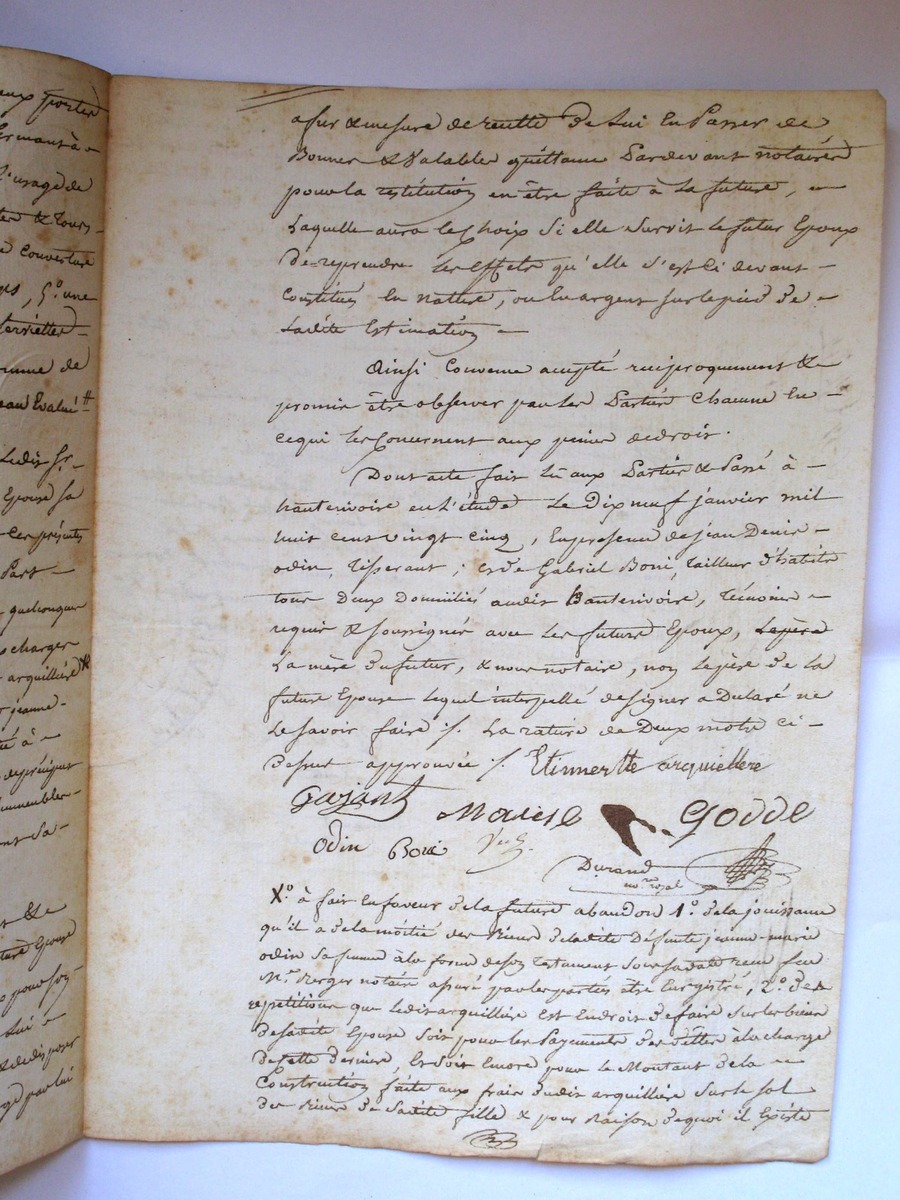 eux porter
l'usage de
couverture
5.° une
serviettes
somme de
Evalué ₶
Ledit Sr.
Epouse sa
ces présentes
Part
quelconque
charger
arquilliére
jeanne
de préciput
immeubles
ture Epouse
pour son
lui
& de disposer
par lui
a fur & mesure de recette de lui En Passer de
Bonnes & Valables quittance Pardevant notaires
pour la restitution en être faite à la future,
Laquelle aura le Choix si elle survit le futur Epoux
De reprendre les Effets qu'elle s'est Ci devant
Constitué En nature, ou En argent sur le pied de
Ladite Estimation
Ainsi Convenu accepté reciproquement &
promis être observer par les Parties Chacune En
ce qui les Concernent aux peines de droit.
Dont acte fait Lu aux Parties & Passé à
hauterivoire en l'étude Le Dix neuf janvier mil
huit cent vingt cinq, En presence de jean Denis
odin, Tisserant; & de Gabriel Boni, tailleur d'habits
tous Deux Domiciliés audit hauterivoire, Témoins
requis & soussignés avec Les futurs Epoux, le père
La mère du futur, & nous notaire, non Le père de la
future Epouse Lequel interpellé de signer a Déclaré ne
Le savoir faire ./. La rature de Deux mots ci
Dessus approuvée ./. Etiennette arquillere
Gajant Godde
odin Boni
Durand
no.re royal
X.° à fair En faveur de la future abandon 1.° de la jouissance
qu'il a de la moitié des Biens de ladite Défunte jeanne-marie
odin sa femme à la forme de son testament sous sa date reçu
M.e Berger notaire assuré par les parties être Enregistré, 2.° de
repetitions que ledit arquilliére Est En droit de faire sur les biens
de sadite Epouse soit pour les Payements des dettes à la charge
de cette derniére, Et soit Encore pour le Montant de la
Construction faite aux frais dudit arquilliére sur le sol
des Biens de Sadite fille & pour Raison de quoi il Existe